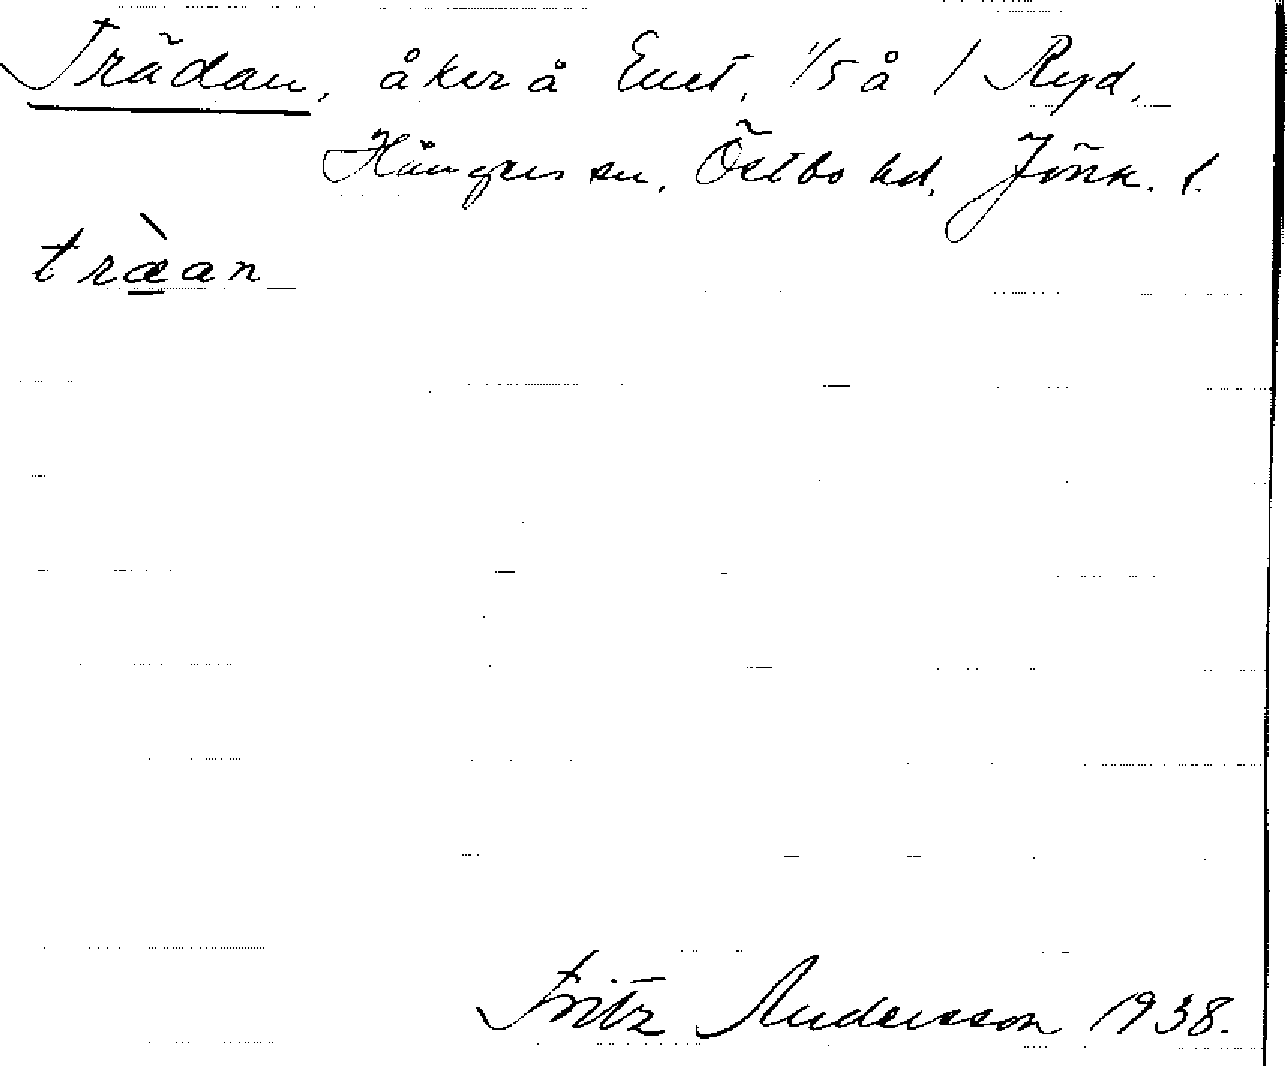 Trädan, åker å Enet, 1/5 å 1 Ryd,
Hångers sn, Östbo hd, Jönk. l.
træ̀an
Fritz Andersson 1938.